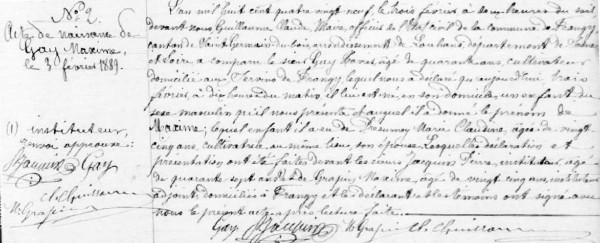 N° 2
Acte de naissance de
Gay Maxime,
le 3 février 1889.
(1) instituteur,
renvoi approuvé:
Jacquin Gay
Ch. Guillemin
M. Grapin
L'an mil huit cent quatre vingt neuf, le trois février à deux heures du soir
devant nous Guillaume Claude Maire, officier de l'Etat civil de la commune de Frangy
canton de Saint Germain du bois, arrondissement de Louhans, département de Saône
et Loire, a comparu le sieur Gay âgé de quarante ans, cultivateur
domicilié aux de Frangy, lequel nous a déclaré qu'aujourd'hui trois
février à dix heures du matin il lui est né, en son domicile, un enfant du
sexe masculin qu'il nous présente et auquel il a donné le prénom de
Maxime; lequel enfant il a eu de Marie Claudine, âgée de vingt
cinq ans, cultivatrice au même lieu, son épouse. Lesquelles déclaration et
présentation ont été faites devant les sieurs Jacquin Pierre, instituteur âgé
de quarante sept ans et de Grapin Maxime, âgé de vingt cinq ans, instituteur
adjoint, domiciliés à Frangy et le déclarant et les témoins ont signé avec
nous le présent acte après lecture faite.
Gay Jacquin M. Grapin Ch. Guillemin